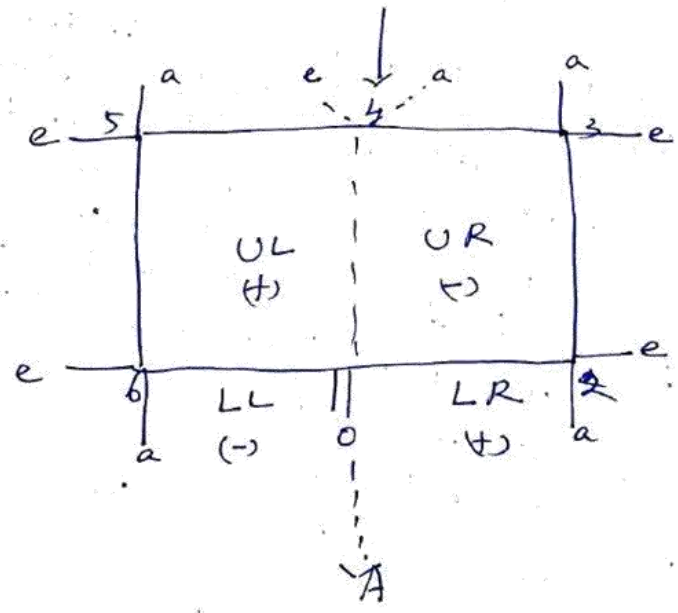 a e a a
e 5 4 3 e
UL UR
(+) (-)
e e
6 LL LR 2
(-) O (+)
a a
A